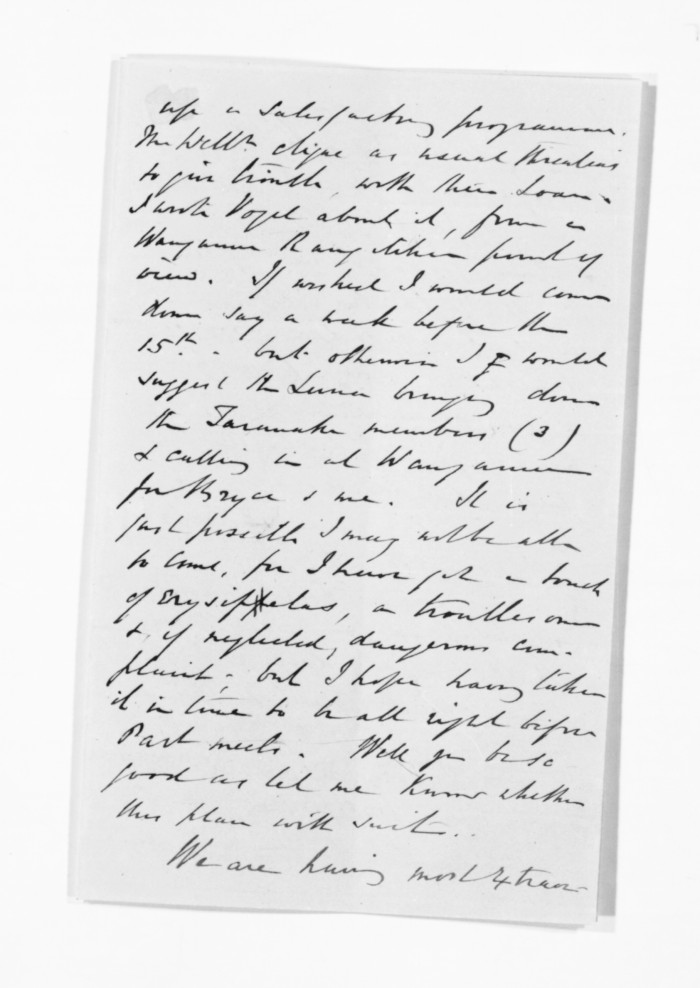 up a satisfactory programme.
The Welln. clique as usual threatens
to give trouble, with their Loan.
I wrote Vogel about it, from a
Wanganui Rangitikei point of
view. If wished I would come
down say a week before the
15th. - but otherwise I would
suggest the Luna bringing down
the Taranaki members (3)
& calling in at Wanganui
for Bryce & me. It is
just possible I may not be able
to come, for I have got a touch
of Erysipelas, a troublesome
&, if neglected, dangerous com-
plaint; but I hope having taken
it in time to be all right before
Parlt meets. Will you be so
good as let me know whether
this plan will suit..
We are having most extraor-